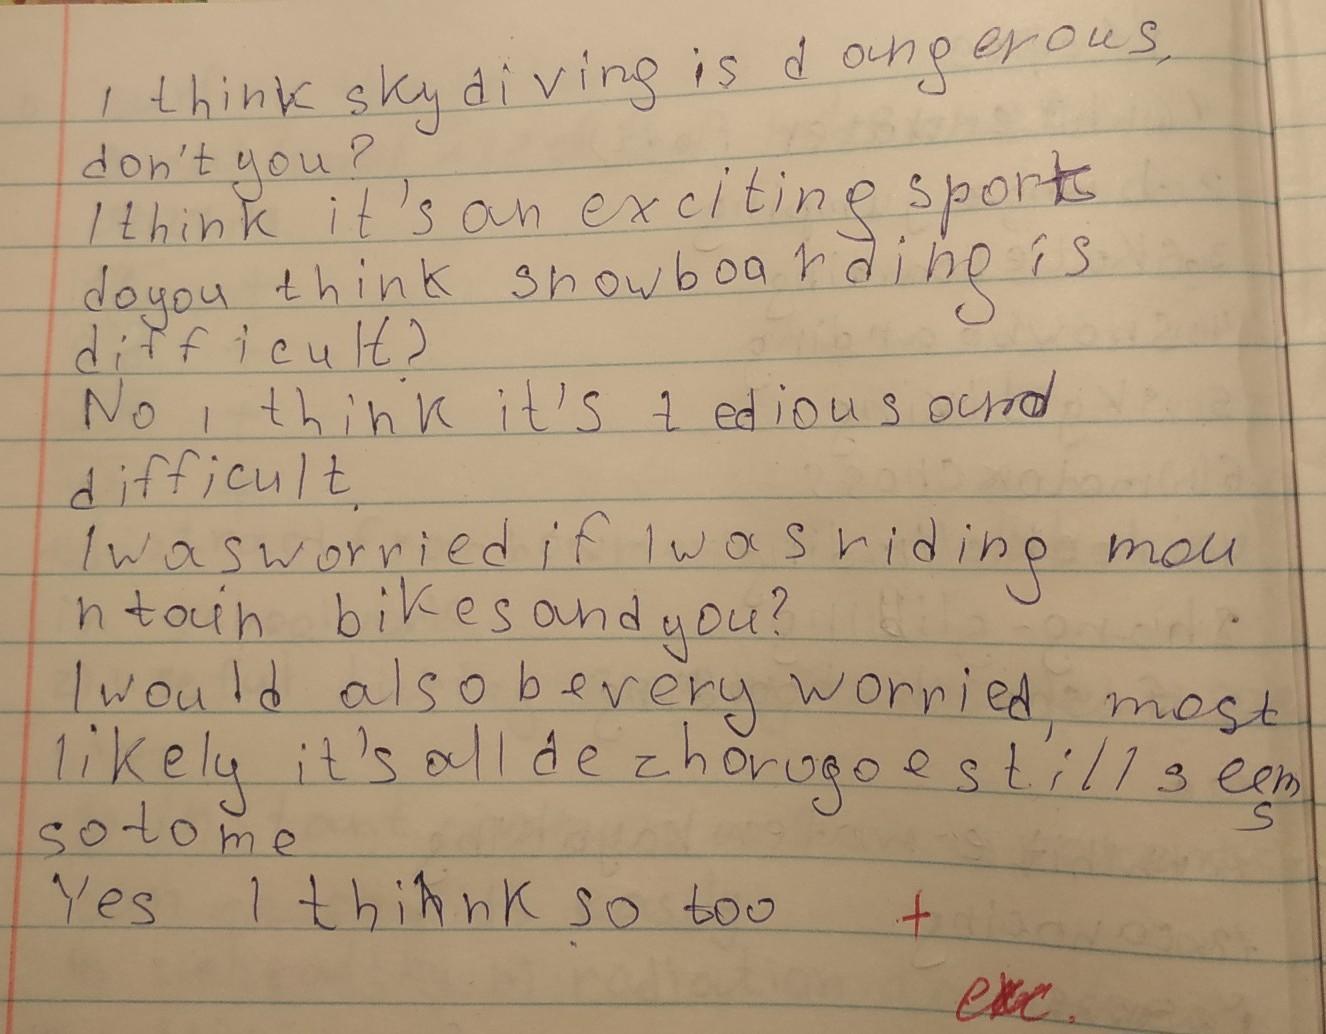 I think skydiving is dangerous,
don't you?
I think it's an exciting sport
do you think snowboarding is
difficult?
No I think it's tedious and
difficult.
I was worried if I was riding mou
ntain bikes and you?
I would also be very worried, most
likely it's all still seem
s
so to me
Yes I think so too +
exc.